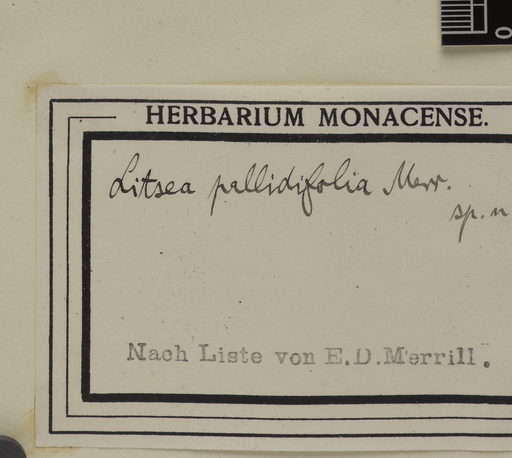 HERBARIUM MONACENSE.
Litsea pallidifolia Merr.
sp. n
Nach Liste von E.D.Merrill.
0